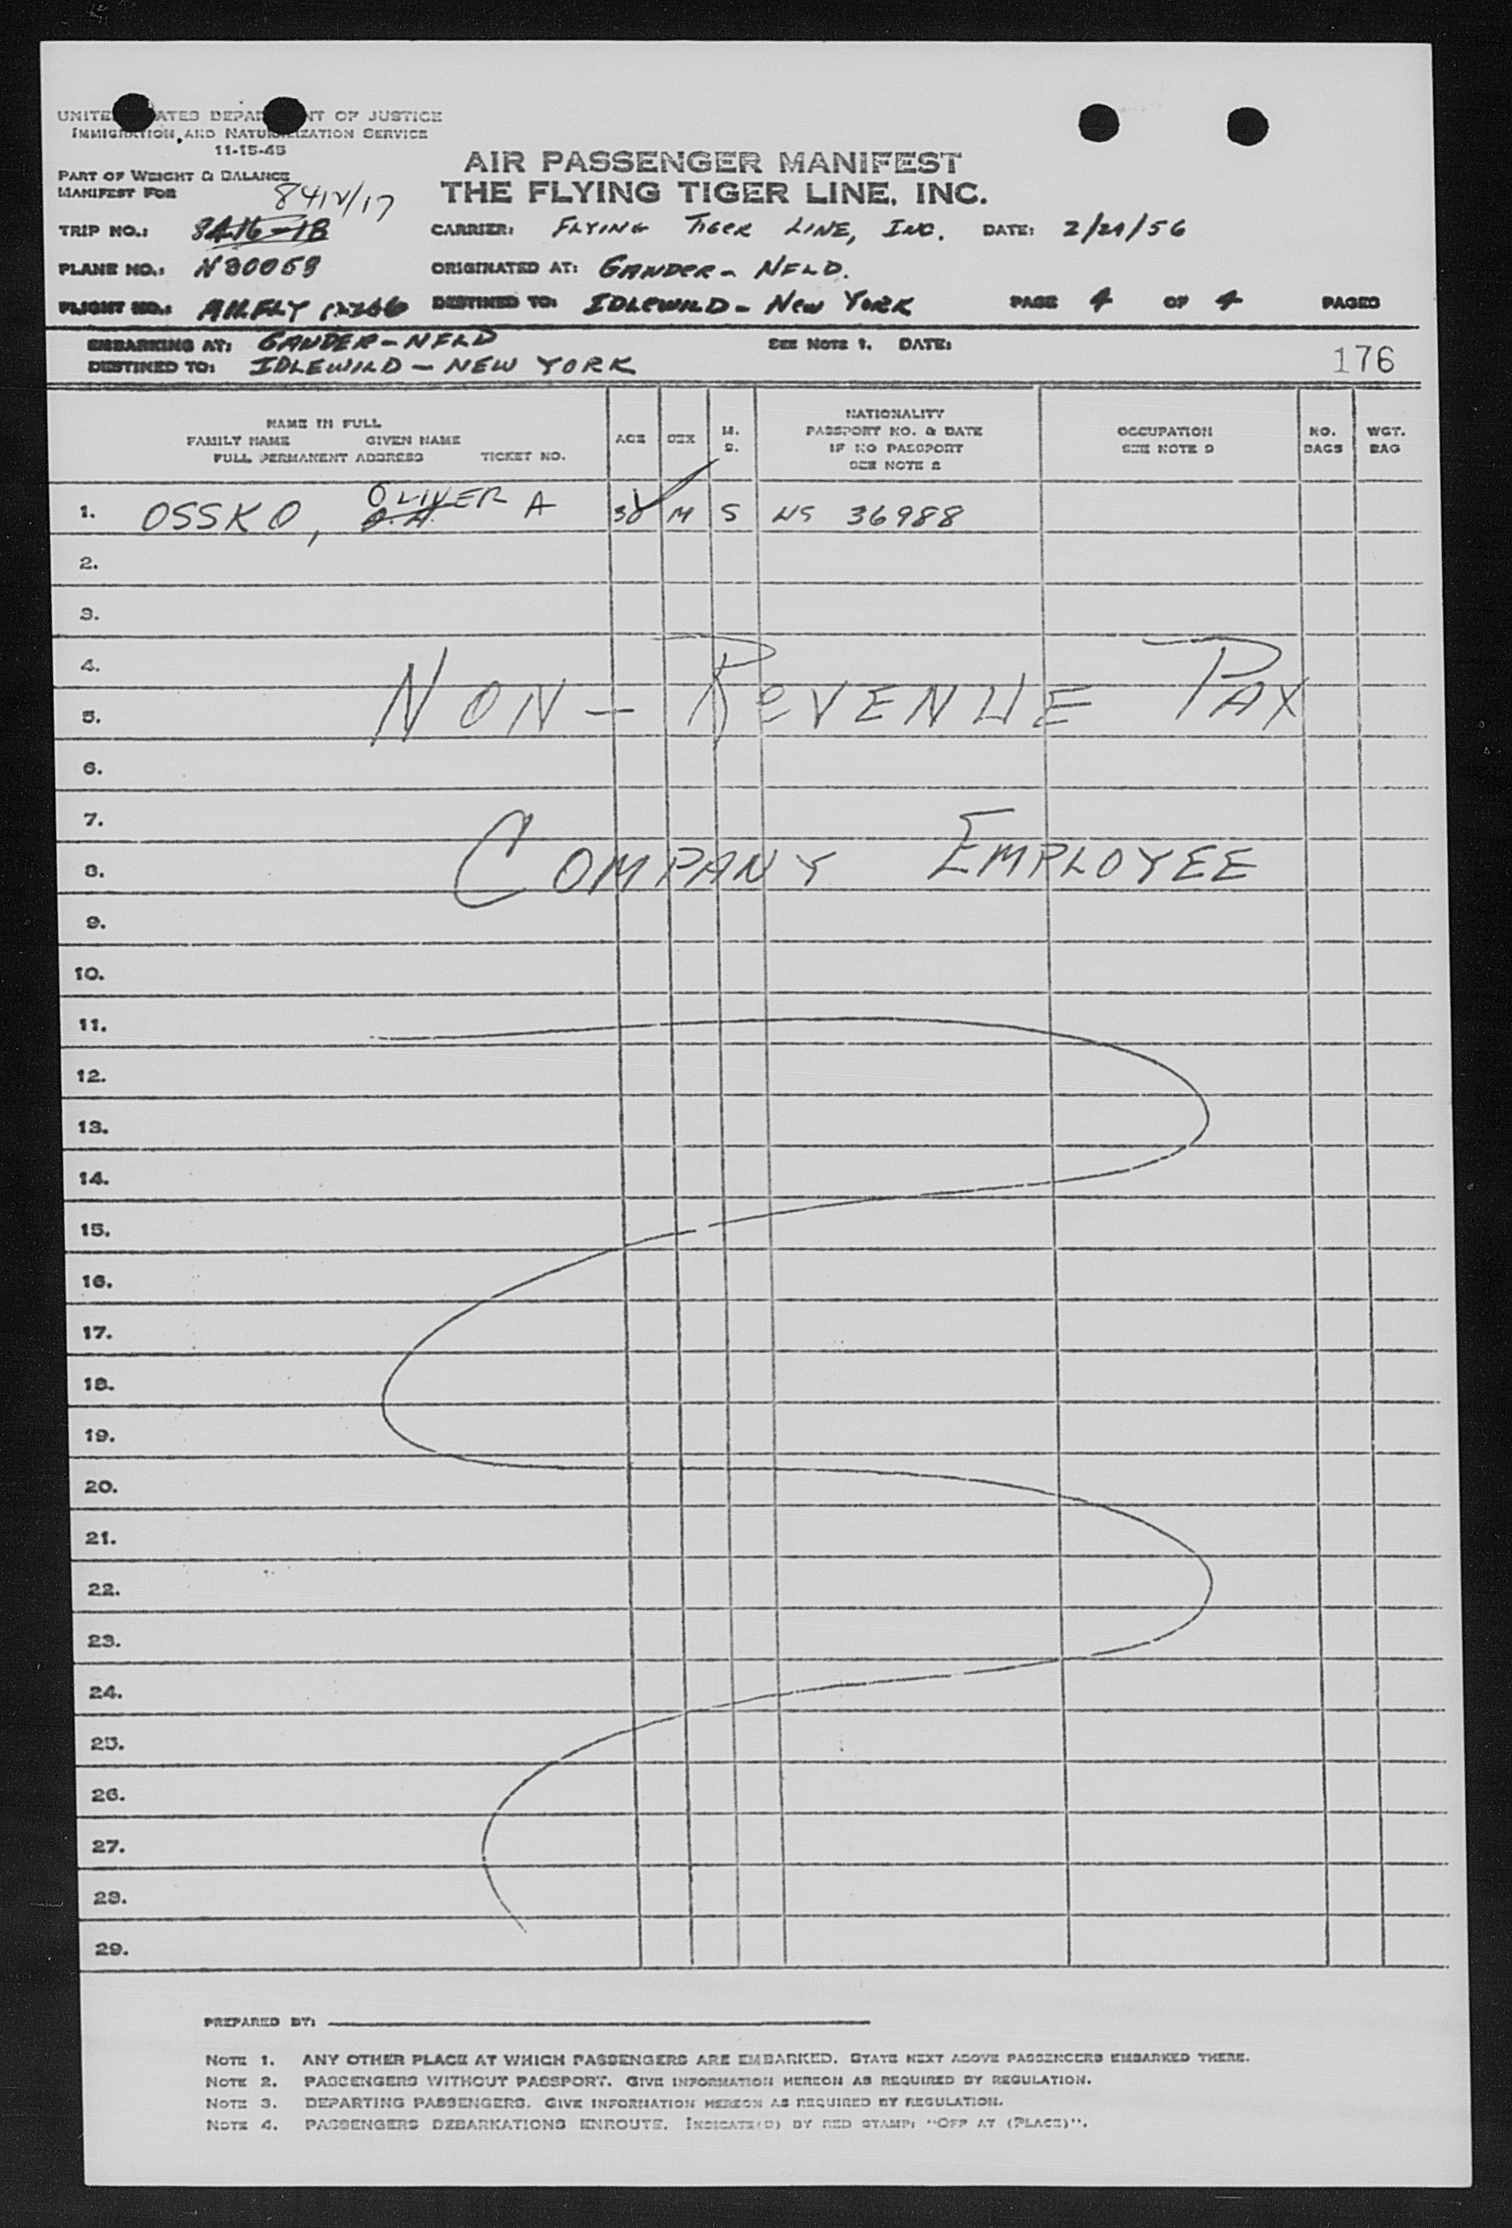 UNITED STATES DEPARTMENT OF JUSTICE
IMMIGRATION AND NATURALIZATION SERVICE
11-15-45
PART OF WEIGHT & BALANCE
MANIFEST FOR
8412/17
AIR PASSENGER MANIFEST
THE FLYING TIGER LINE, INC.
TRIP NO.: CARRIER: FLYING TIGER LINE, INC. DATE: 2/21/56
PLANE NO.: ORIGINATED AT: GANDER - NFLD.
FLIGHT NO.: AIRFLY DESTINED TO: IDLEWILD - NEW YORK PAGE 4 OF 4 PAGES
EMBARKING AT: GANDER - NFLD SEE NOTE 1. DATE:
DESTINED TO: IDLEWILD - NEW YORK 176
NAME IN FULL
FAMILY NAME GIVEN NAME
FULL PERMANENT ADDRESS TICKET NO.
AGE SEX M. S.
NATIONALITY
PASSPORT NO. & DATE
IF NO PASSPORT
SEE NOTE 2
OCCUPATION
SEE NOTE 3
NO. BAGS
WGT. BAG
1. OSSKO, OLIVER A M S US 36988
2.
3.
4.
NON - REVENUE PAX
5.
6.
7.
8. COMPANY EMPLOYEE
9.
10.
11.
12.
13.
14.
15.
16.
17.
18.
19.
20.
21.
22.
23.
24.
25.
26.
27.
28.
29.
PREPARED BY:
NOTE 1. ANY OTHER PLACE AT WHICH PASSENGERS ARE EMBARKED. STATE NEXT ABOVE PASSENGERS EMBARKED THERE.
NOTE 2. PASSENGERS WITHOUT PASSPORT. GIVE INFORMATION HEREON AS REQUIRED BY REGULATION.
NOTE 3. DEPARTING PASSENGERS. GIVE INFORMATION HEREON AS REQUIRED BY REGULATION.
NOTE 4. PASSENGERS DEBARKATIONS ENROUTE. INDICATE(D) BY RED STAMP: "OFF AT (PLACE)".